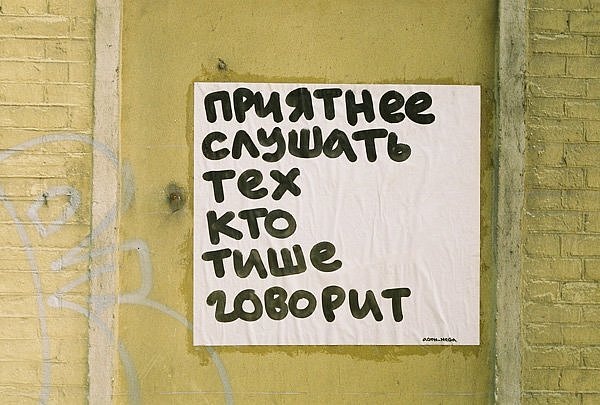 ПРИЯТНЕЕ
СЛУШАТЬ
ТЕХ
КТО
ТИШЕ
ГОВОРИТ